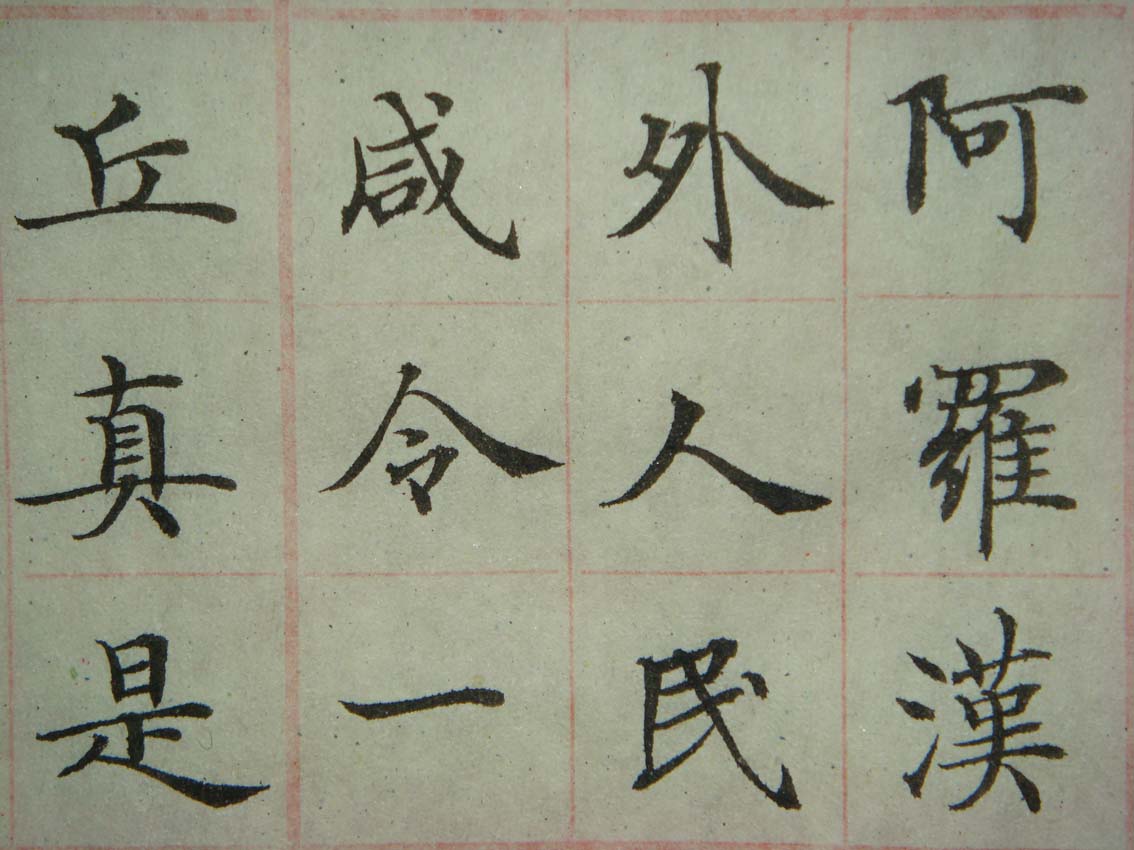 阿羅漢
外人民
咸令一
丘真是